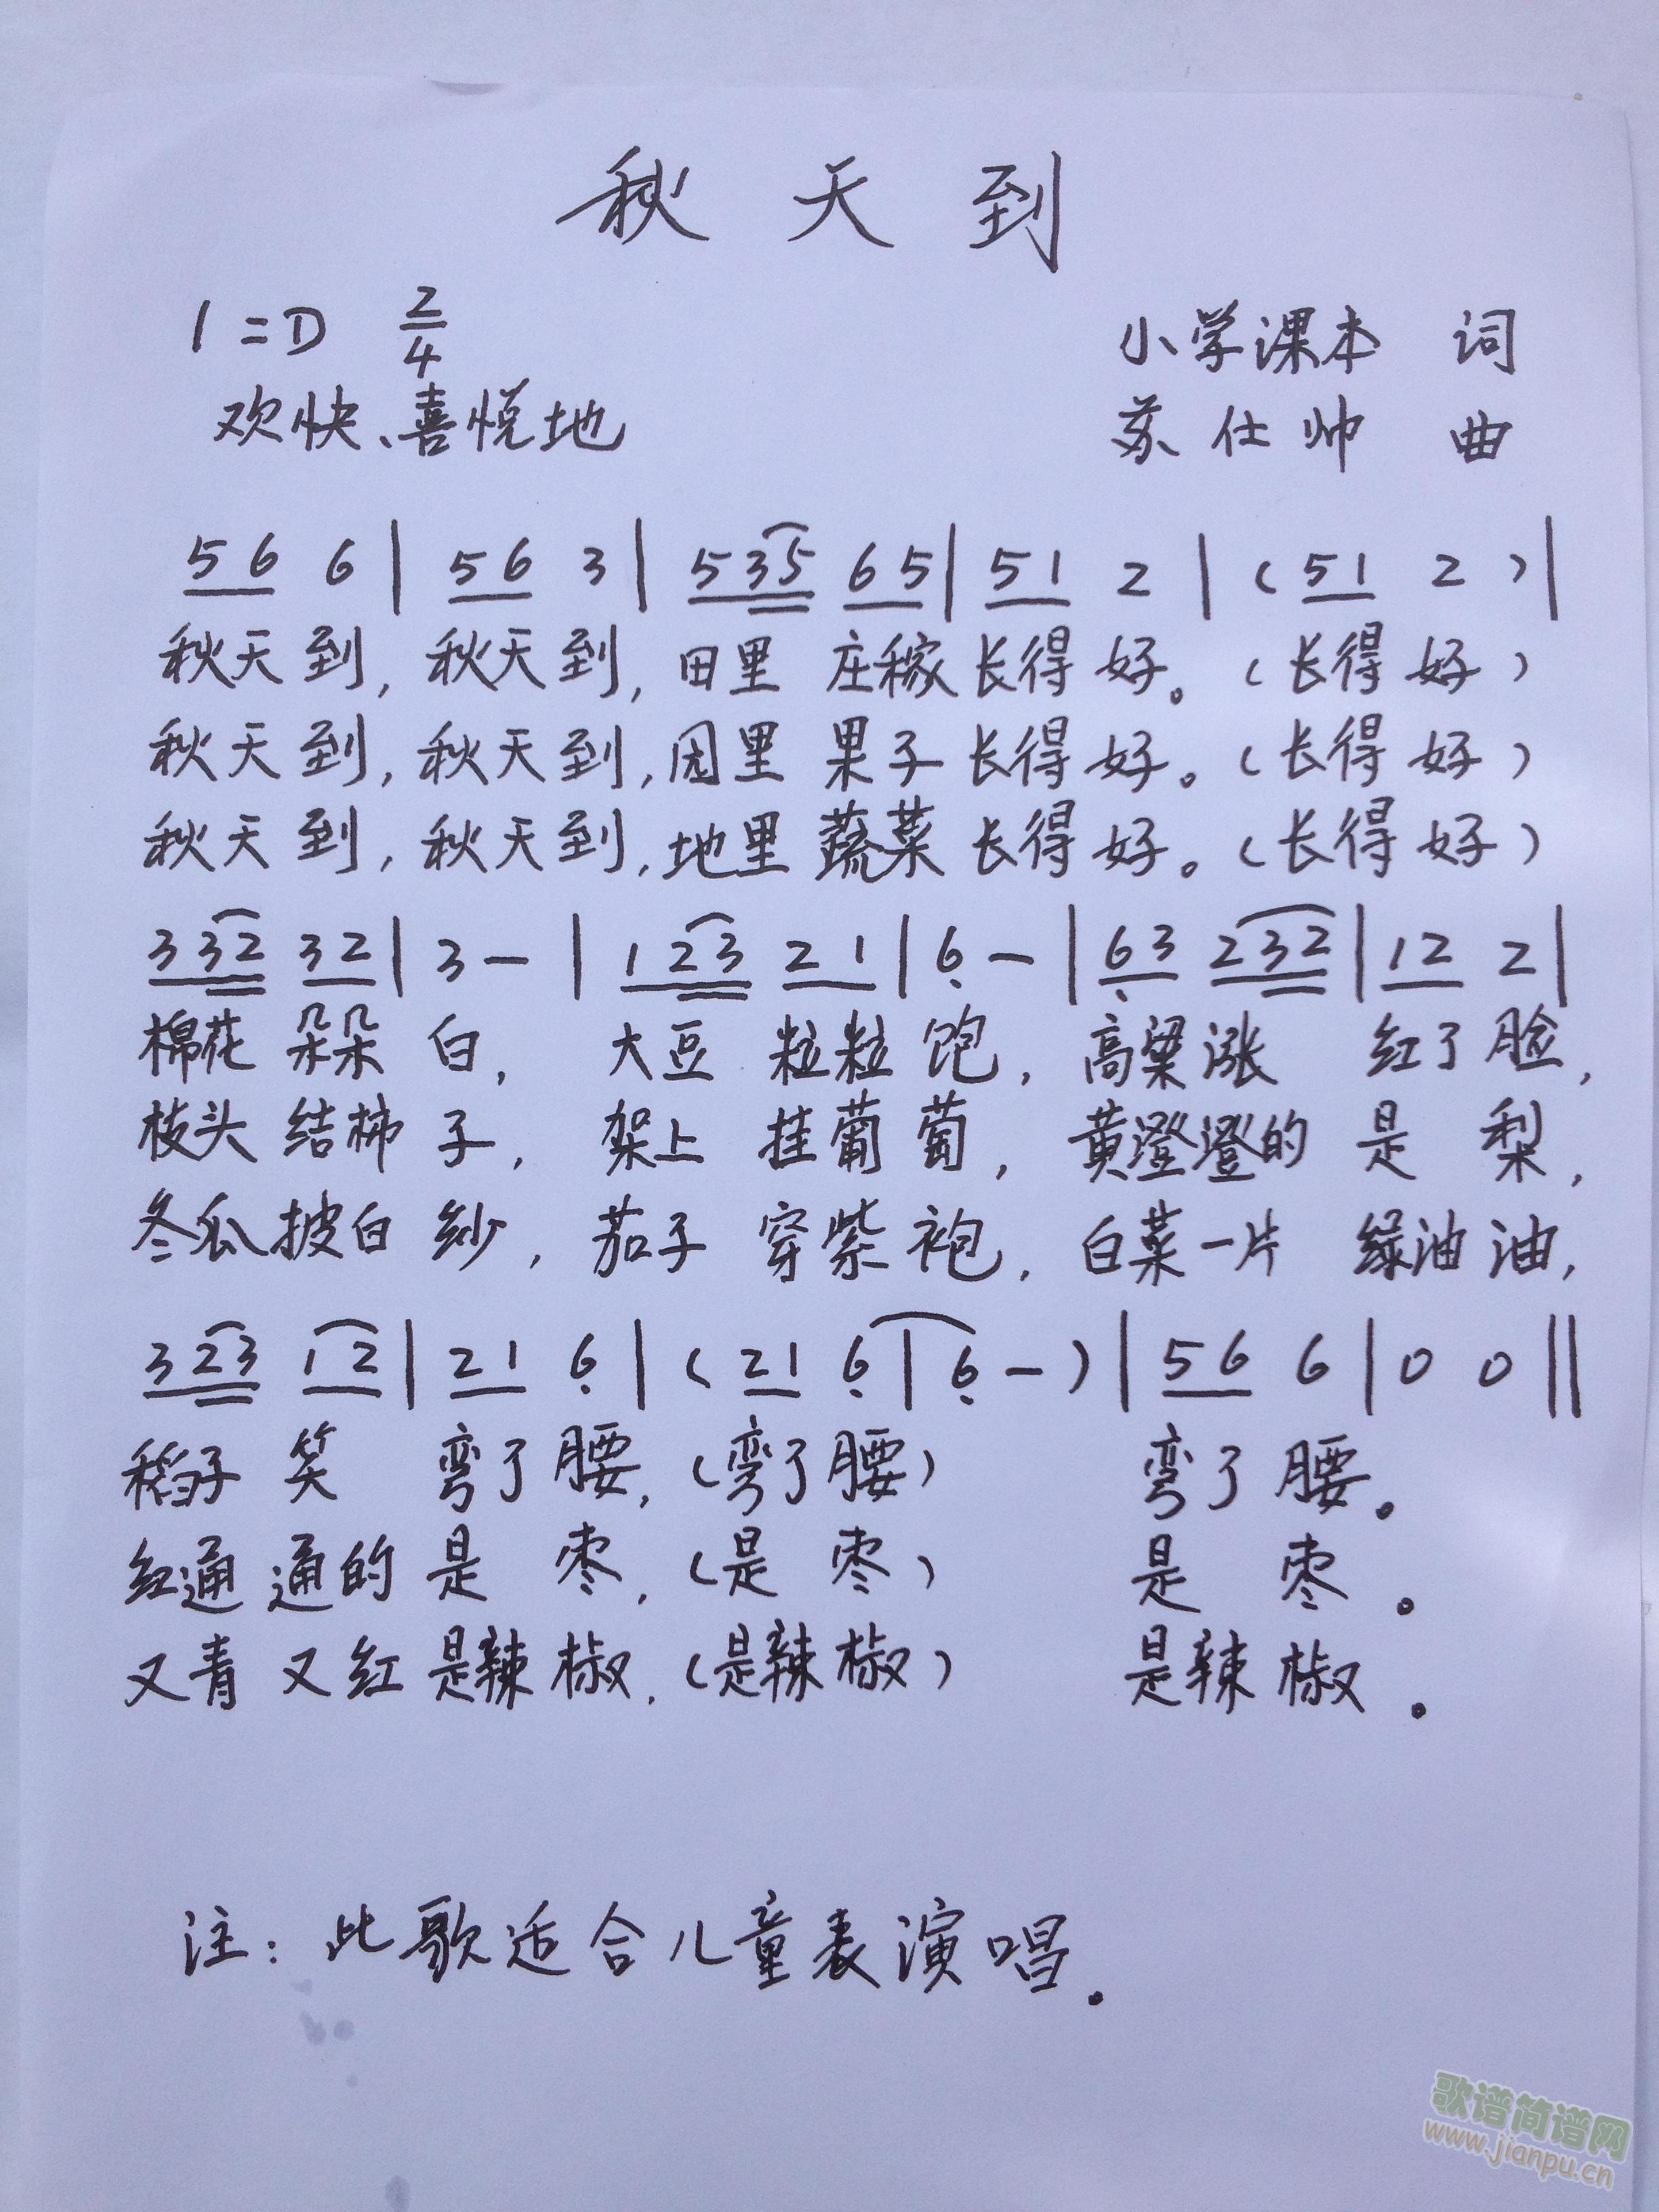 秋 天 到
1=D 2/4
小学课本 词
欢快、喜悦地
苏仕帅 曲
5 6 6 | 5 6 3 | 5 3 5 6 5 | 5 1 2 | ( 5 1 2 ) |
秋天到，秋天到，田里 庄稼 长得 好。（长得 好）
秋天到，秋天到，园里 果子 长得 好。（长得 好）
秋天到，秋天到，地里 蔬菜 长得 好。（长得 好）
3 3 2 3 2 | 3 — | 1 2 3 2 1 | 6̣ — | 6̣ 3 2 3 2 | 1 2 2 |
棉花 朵朵 白， 大豆 粒粒 饱，高粱涨 红了脸，
枝头 结柿 子， 架上 挂葡 萄，黄澄澄的 是 梨，
冬瓜披白 纱， 茄子 穿紫 袍，白菜一片 绿油油，
3 2 3 1 2 | 2 1 6̣ | ( 2 1 6̣ | 6̣ — ) | 5 6 6 | 0 0 ‖
稻子 笑 弯了腰，（弯了腰） 弯了腰。
红通 通的 是 枣，（是 枣） 是 枣。
又青 又红 是辣 椒，（是辣 椒） 是辣 椒。
注：此歌适合儿童表演唱。
歌谱简谱网
www.jianpu.cn